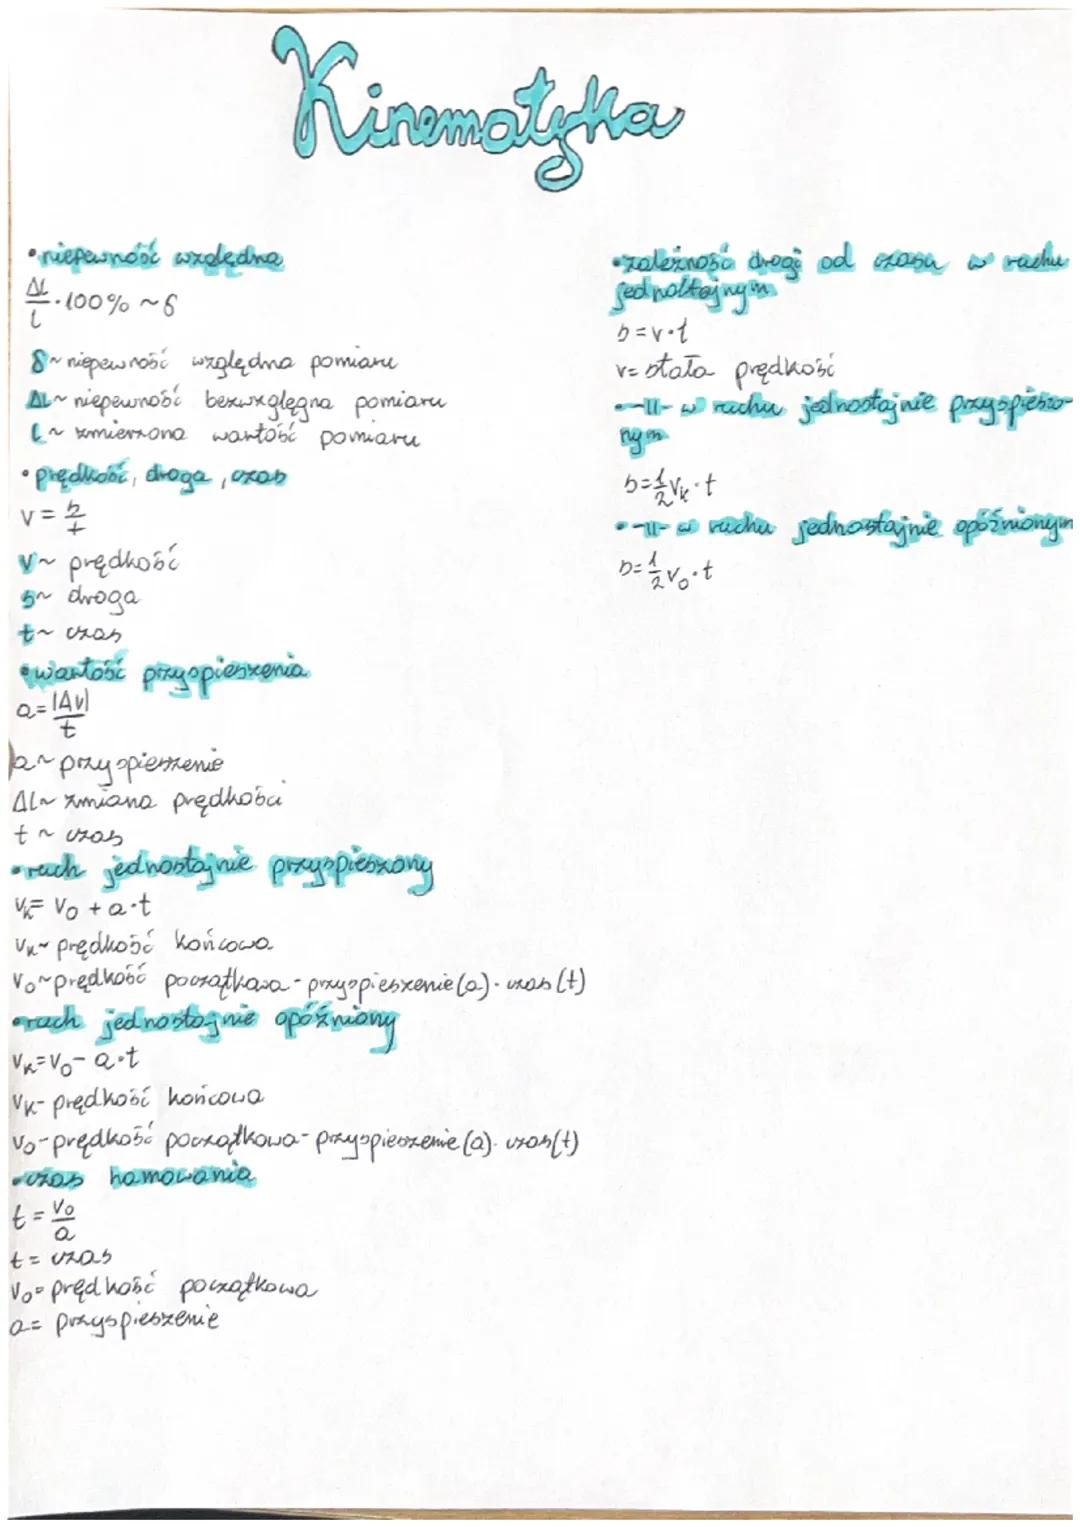 Kinematyka
• niepewność względna
ΔL/l · 100% ~ δ
δ ~ niepewność względna pomiaru
ΔL ~ niepewność bezwzględna pomiaru
l ~ zmierzona wartość pomiaru
• prędkość, droga, czas
v = s/t
v ~ prędkość
s ~ droga
t ~ czas
• wartość przyspieszenia
a = |Δv|/t
a ~ przyspieszenie
ΔL ~ zmiana prędkości
t ~ czas
• ruch jednostajnie przyspieszony
Vk = V₀ + a·t
Vk ~ prędkość końcowa
V₀ ~ prędkość początkowa - przyspieszenie (a) · czas (t)
• ruch jednostajnie opóźniony
Vk = V₀ - a·t
Vk - prędkość końcowa
V₀ - prędkość początkowa - przyspieszenie (a) · czas (t)
• czas hamowania
t = V₀/a
t = czas
V₀ = prędkość początkowa
a = przyspieszenie
• zależność drogi od czasu w ruchu
jednostajnym
s = v·t
v = stała prędkość
• -||- w ruchu jednostajnie przyspieszo-
nym
s = 1/2 Vk · t
• -||- w ruchu jednostajnie opóźnionym
s = 1/2 V₀ · t